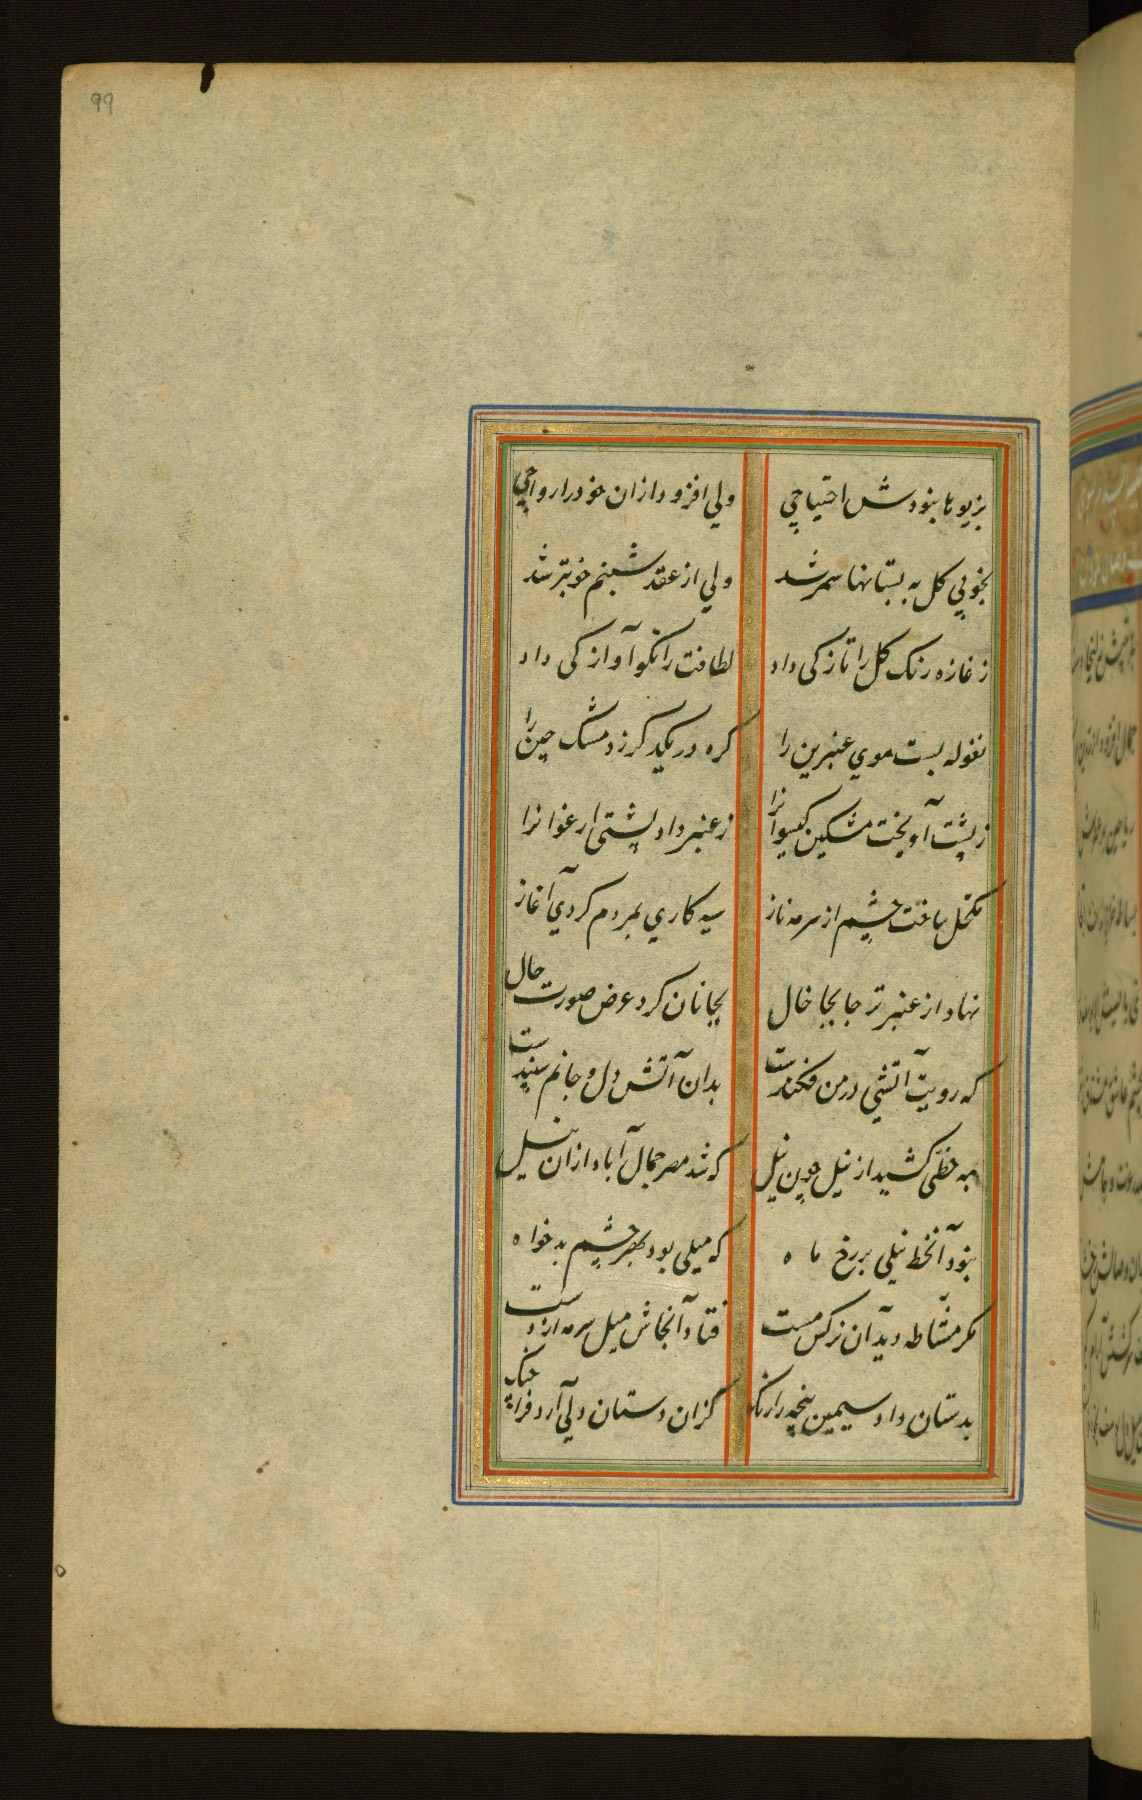 99
بزیورها بنودش احتیاجی ولی افزود ازان خود را رواجی
بخوبی کل به بستانها سمر شد ولی از عقد شبنم خوبتر شد
ز غازه رنک کل را تازکی داد لطافت را نکو آوازکی داد
نغوله بست موی عنبرین را کره در یکدکر زد مشک چین را
ز پشت آویخت مشکین کیسوانرا ز عنبر داد پشتی ارغوانرا
مکحل ساخت چشم از سرمه ناز سیه کاری بمردم کرد آغاز
نهاد از عنبر تر جابجا خال بجانان کرد عرض صورت حال
که رویت آتشی در من فکندست بدان آتش دل و جانم سپندست
بمه خطی کشید از نیل چون نیل که شد مصر جمال آباد ازان نیل
بنود آنخط نیلی بر رخ ماه که میلی بود بهر چشم بدخواه
مکر مشاطه دید آن نرکس مست فتاد آنجاش میل سرمه از دست
بدستان داد سیمین پنجه را رنک کزان دستان دلی آرد فرا چنک